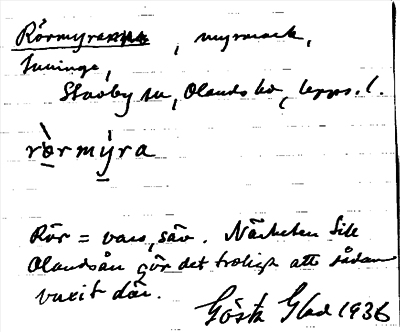 Rörmyran, myrmark,
Inninge,
Stavby sn, Olands hd, Upps. l.
rö̀rmýra
Rör = vass, säv. Närheten till
Olandsån gör det troligt att sådan
vuxit där.
Gösta Glad 1936